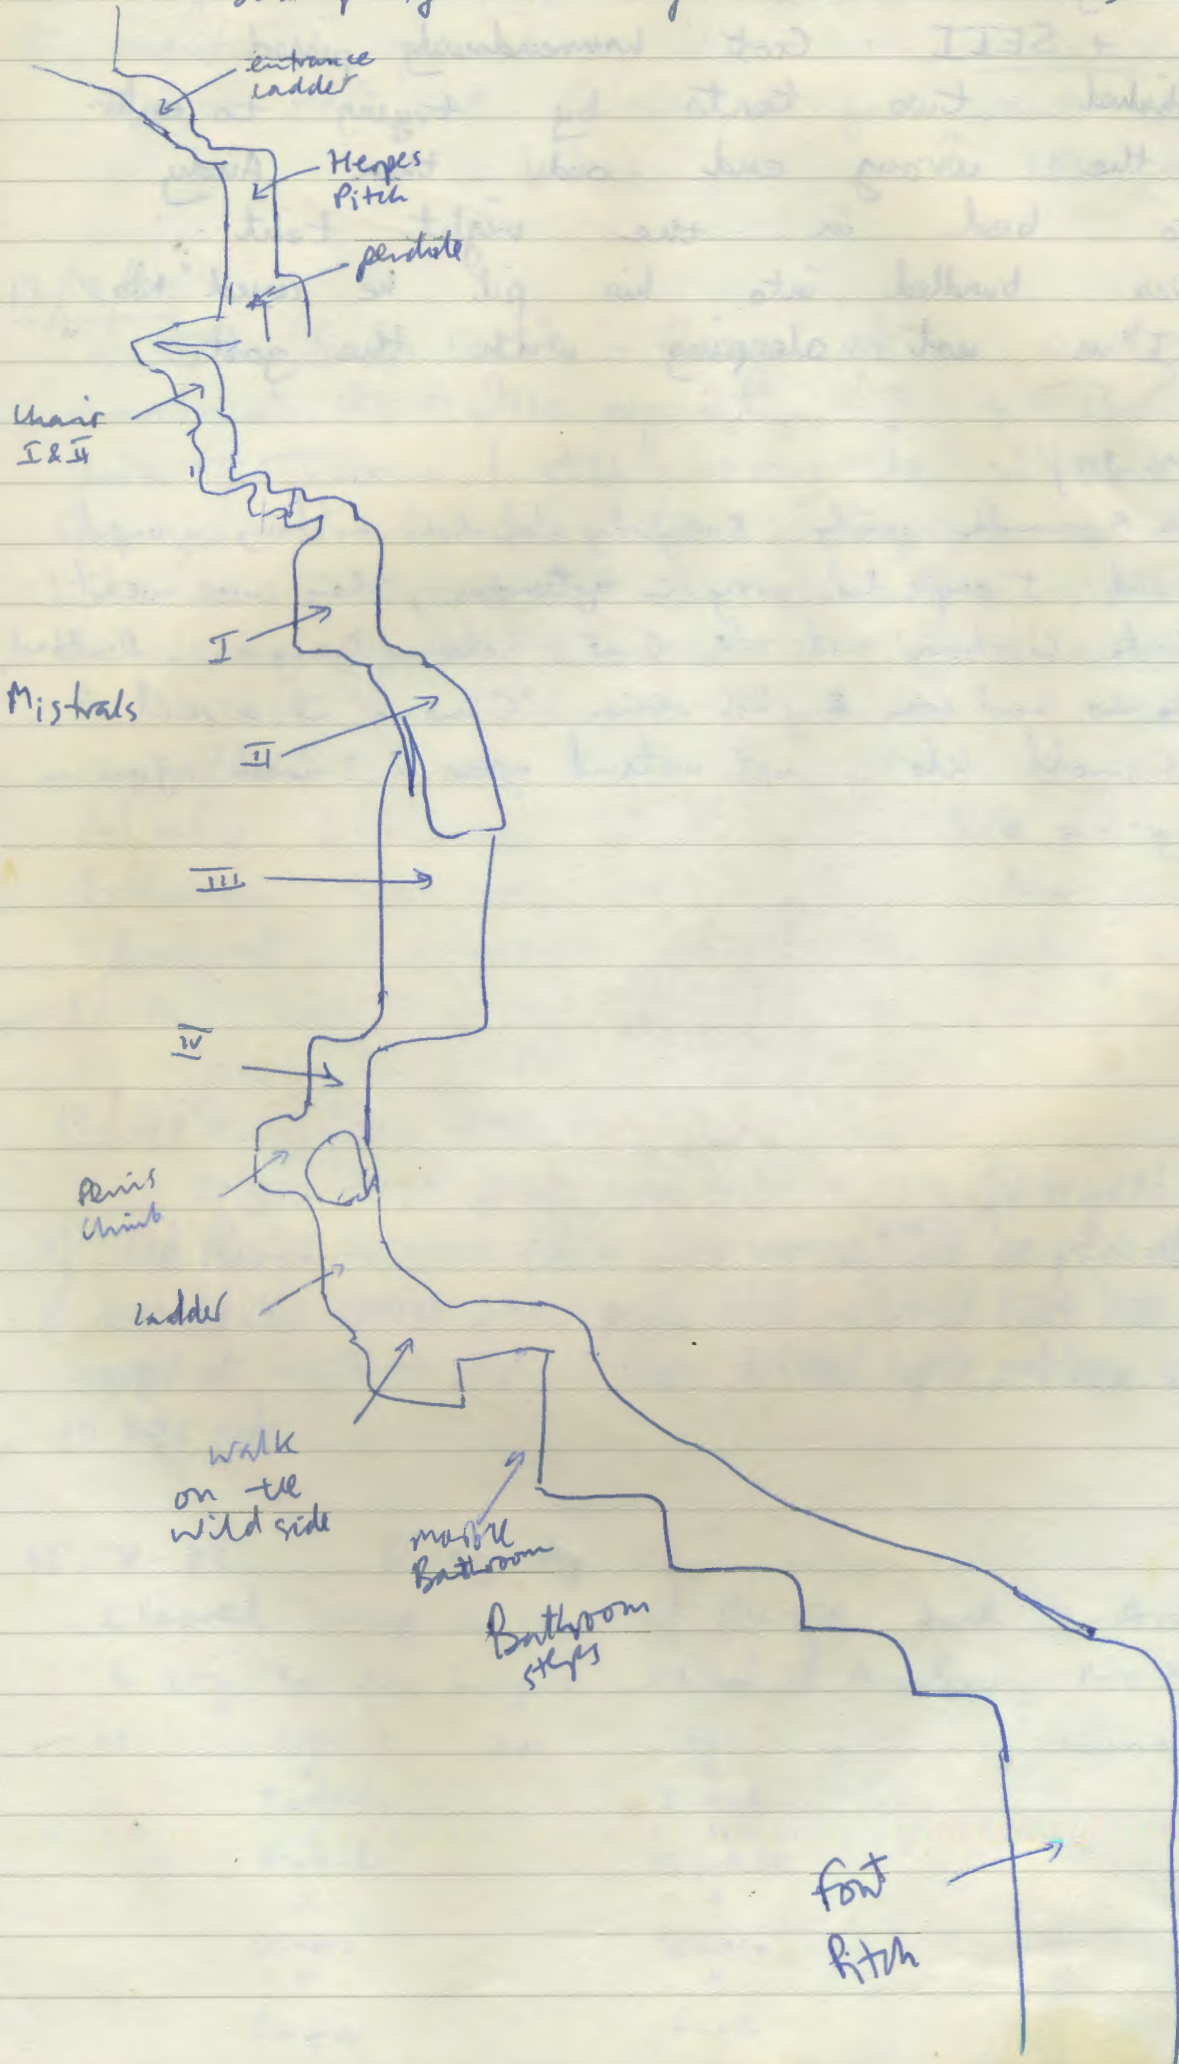 entrance
ladder
Herpes
Pitch
Chair
I & II
I
Mistrals
II
III
IV
Penis
Climb
Ladder
Walk
on the
Wild side
Marble
Bathroom
Bathroom
steps
Font
Pitch